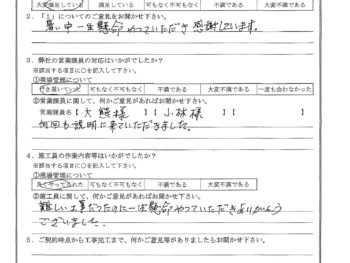 大変満足している 満足している 可もなく不可もなく 不満である 大変不満である
2.「1」についてのご意見をお聞かせ下さい。
暑い中一生懸命やっていただき感謝しています。
3.弊社の営業課員の対応はいかがでしたか?
※該当する項目に○を記入して下さい。
①現場管理について
行き届いていた 可もなく不可もなく 不満である 大変不満である 一度も会わなかった
②営業課員に関して、何かご意見があればお聞かせ下さい。
営業課員名【大熊様 】【小林様 】【 】
何回も説明に来ていただきました。
4.施工員の作業内容等はいかがでしたか?
※該当する項目に○を記入して下さい。
①現場管理について
良くやってくれた 可もなく不可もなく 不満である 大変不満である
②施工員に関して、何かご意見があればお聞かせ下さい。
難しい工事だったのに一生懸命やっていただきありがとう
ございました。
5.ご契約時点から工事完工まで、何かご意見等がありましたらお聞かせ下さい。